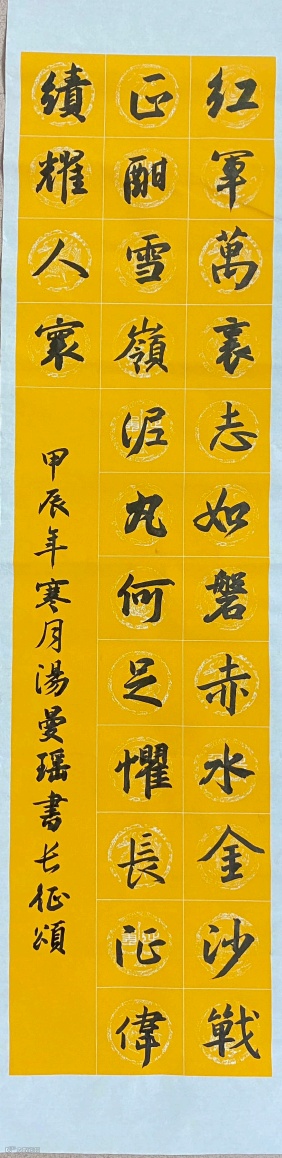 红軍萬裏志如磐赤水金沙戰
正酣雪嶺泥丸何足懼長征偉
績耀人寰
甲辰年寒月湯曼瑶書长征頌